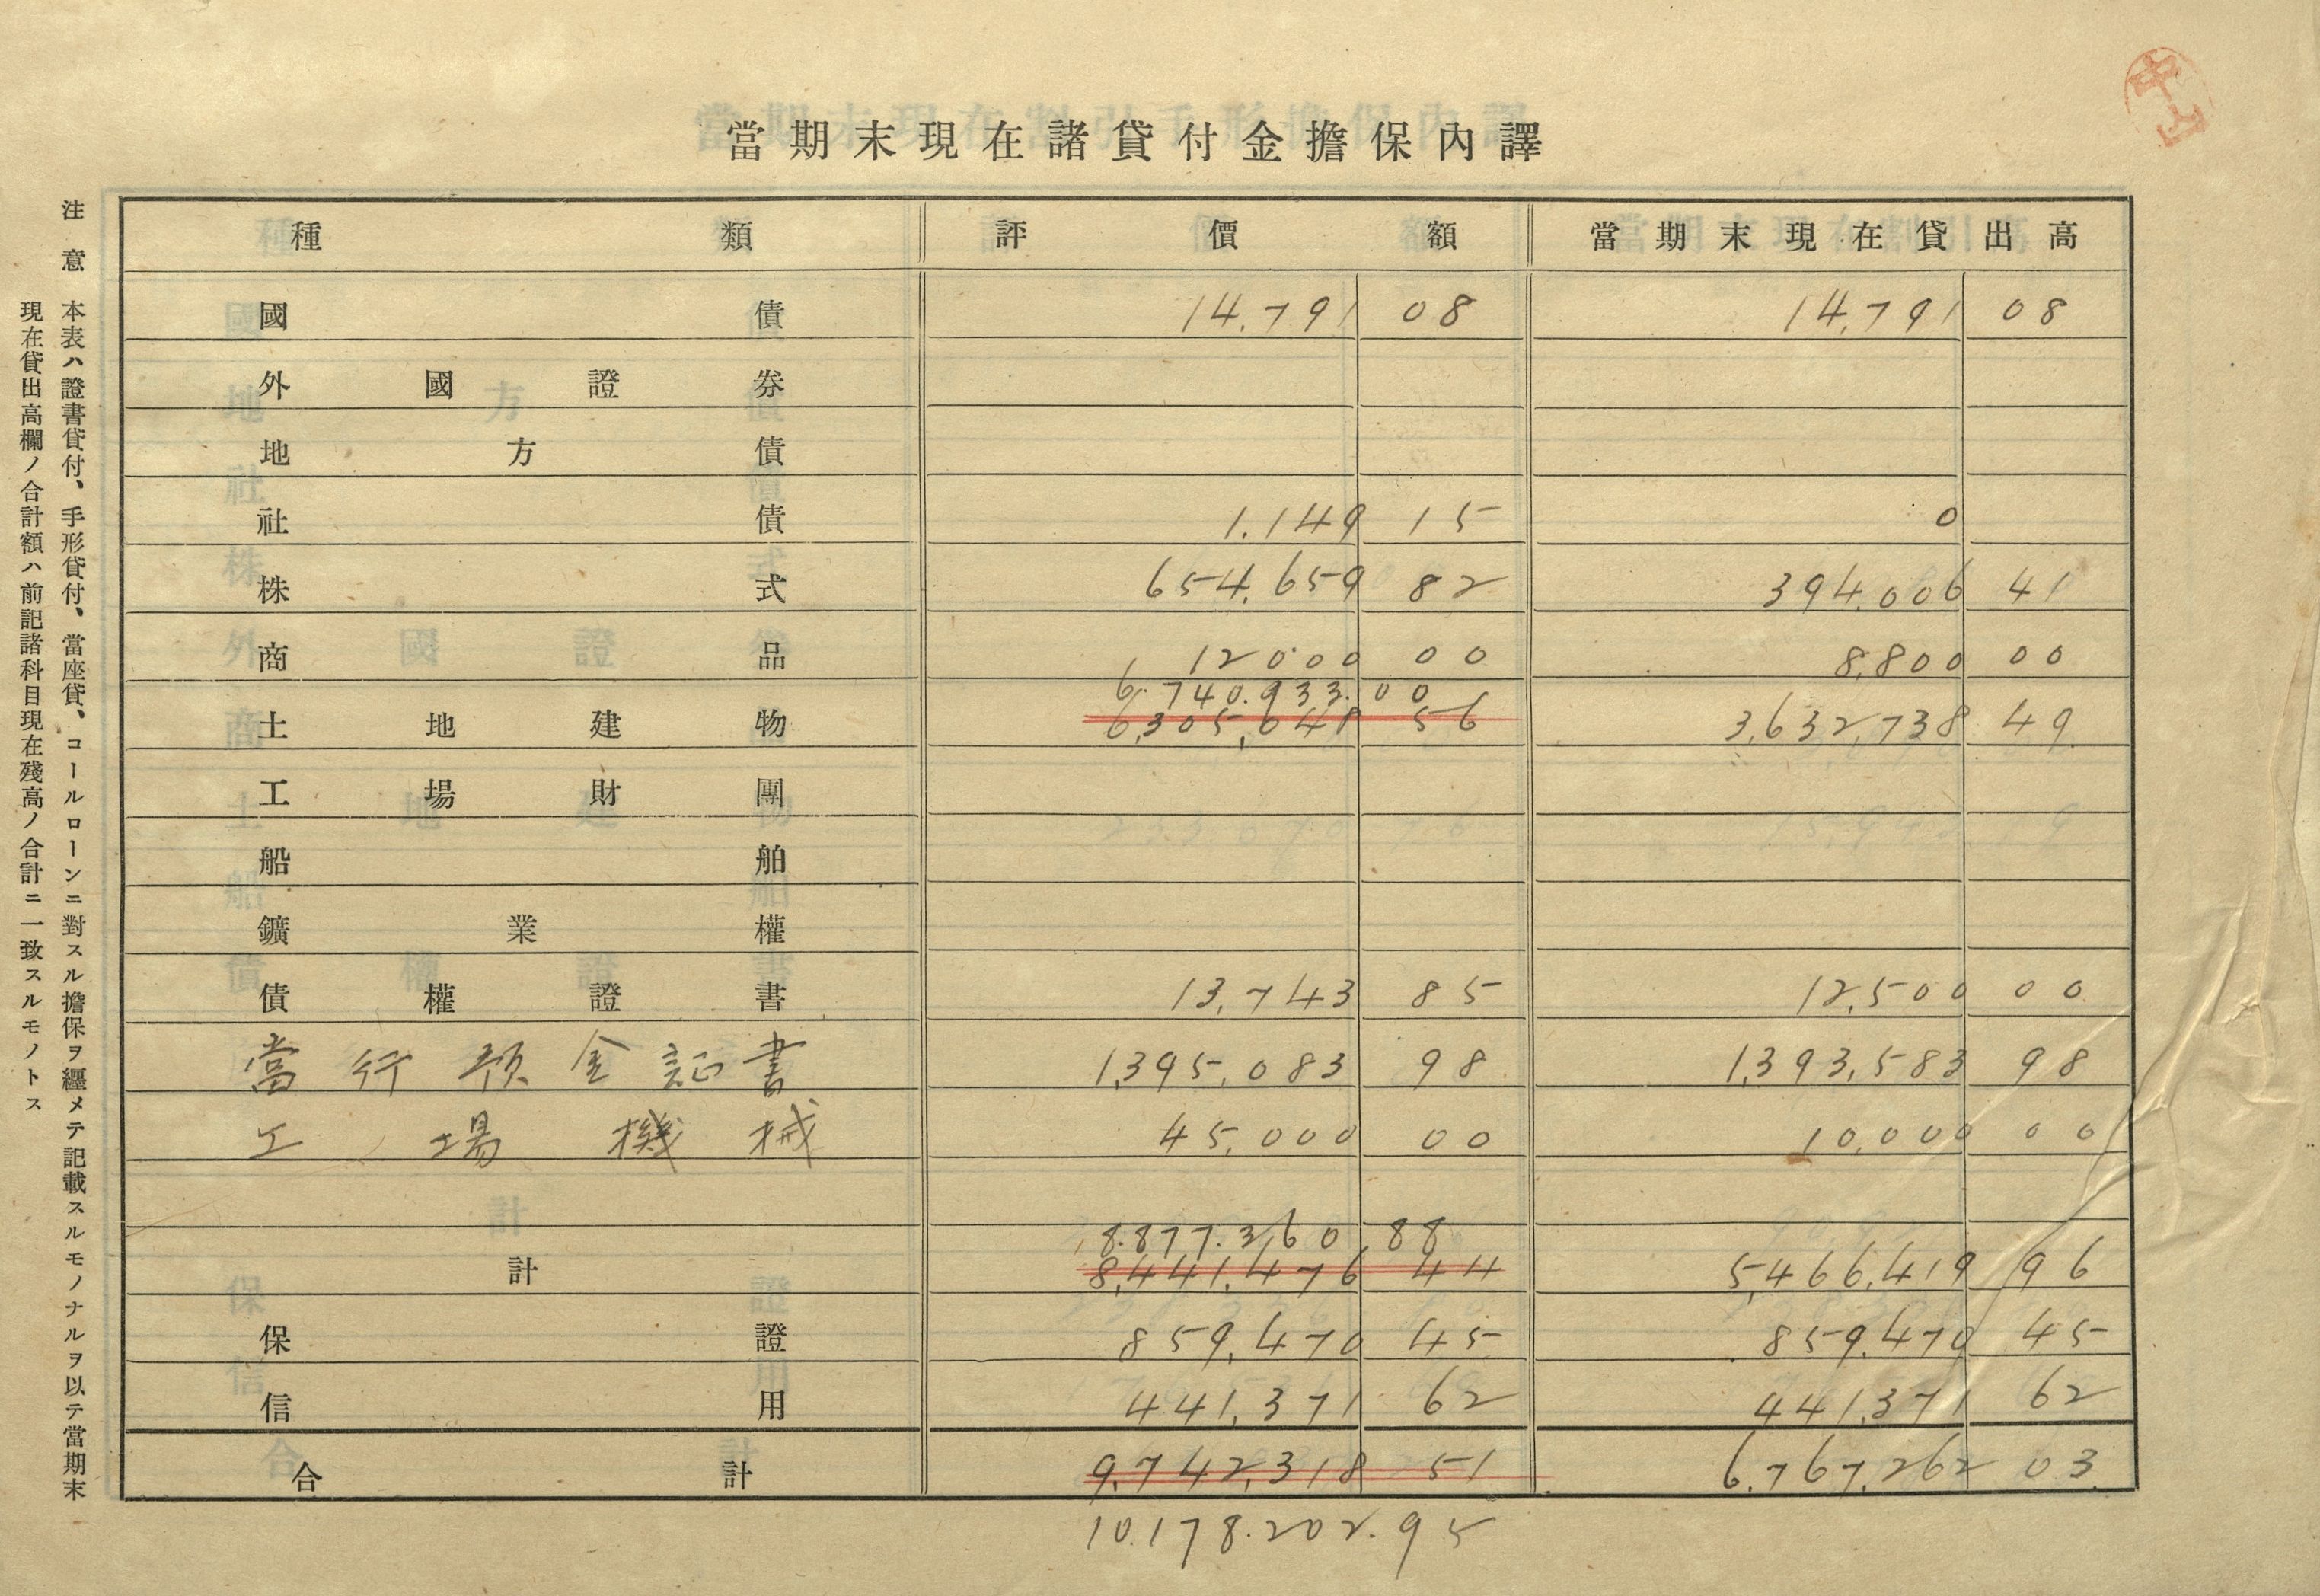 中山
當期末現在諸貸付金擔保內譯
種類 評價額 當期末現在貸出高
國債 14,791 08 14,791 08
外國證券
地方債
社債 1.149 15 0
株式 654,659 82 394,006 41
商品 12000 00 8,800 00
6.740.933.00
土地建物 6,305,048 56 3,632,738 49
工場財團
船舶
鑛業權
債權證書 13,743 85 12,500 00
當行預金証書 1,395,083 98 1,393,583 98
工場機械 45,000 00 10,000 00
8.877.360 88
計 8,441,476 44 5,466,419 96
保證 859,470 45 859,470 45
信用 441,371 62 441,371 62
合計 9,742,318 51 6,767,262 03
10.178.202.95
注意 本表ハ證書貸付、手形貸付、當座貸、コールローンニ對スル擔保ヲ纒メテ記載スルモノナルヲ以テ當期末
現在貸出高欄ノ合計額ハ前記諸科目現在殘高ノ合計ニ一致スルモノトス